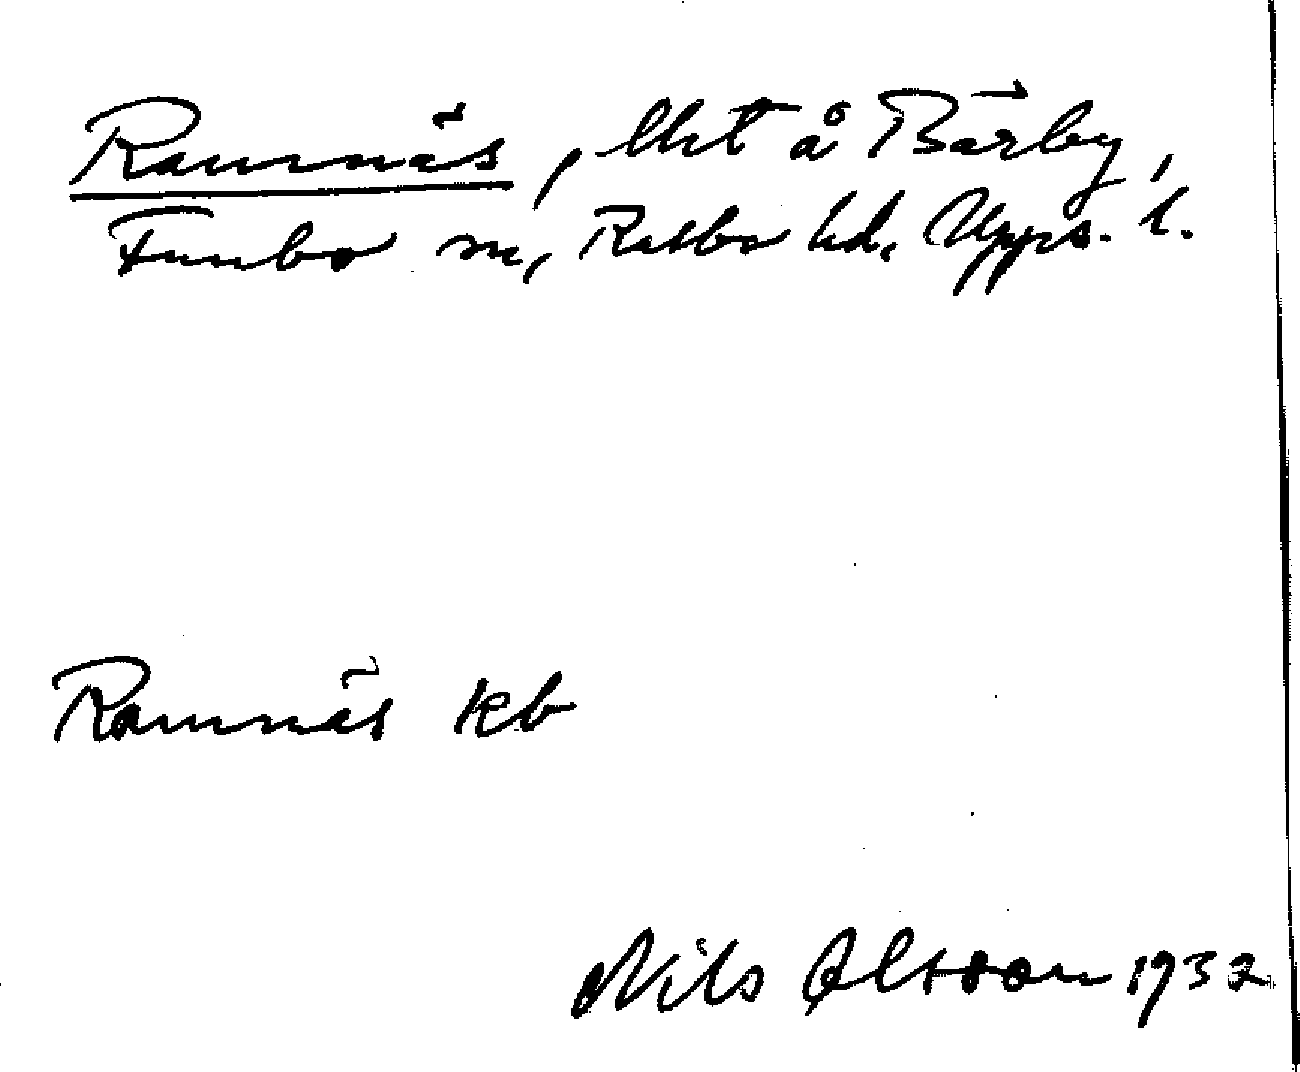 Ramnäs, lht å Bärby,
Funbo sn, Rasbo hd, Upps. l.
Ramnäs kb
Nils Olsson 1932